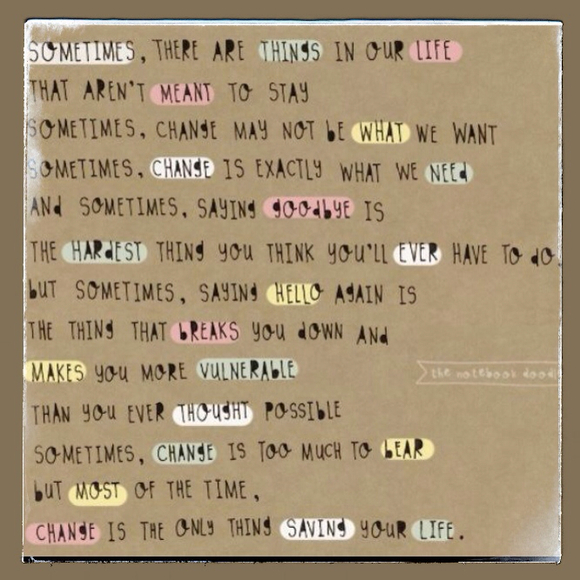 SOMETIMES, THERE ARE THINGS IN OUR LIFE
THAT AREN'T MEANT TO STAY
SOMETIMES, CHANGE MAY NOT bE WHAT WE WANT
SOMETIMES, CHANGE IS EXACTLY WHAT WE NEEd
ANd SOMETIMES, SAYING goodbyE IS
THE HARdEST THING YOU THINK YOU'LL EVER HAVE TO do.
bUT SOMETIMES, SAYING HELLO AGAIN IS
THE THING THAT bREAKS YOU dOWN ANd
MAKES YOU MORE VULNERAbLE
the notebook doodl
THAN YOU EVER THOUGHT POSSIbLE
SOMETIMES, CHANGE IS TOO MUCH TO bEAR
bUT MOST OF THE TIME,
CHANGE IS THE ONLY THING SAVING YOUR LIFE.